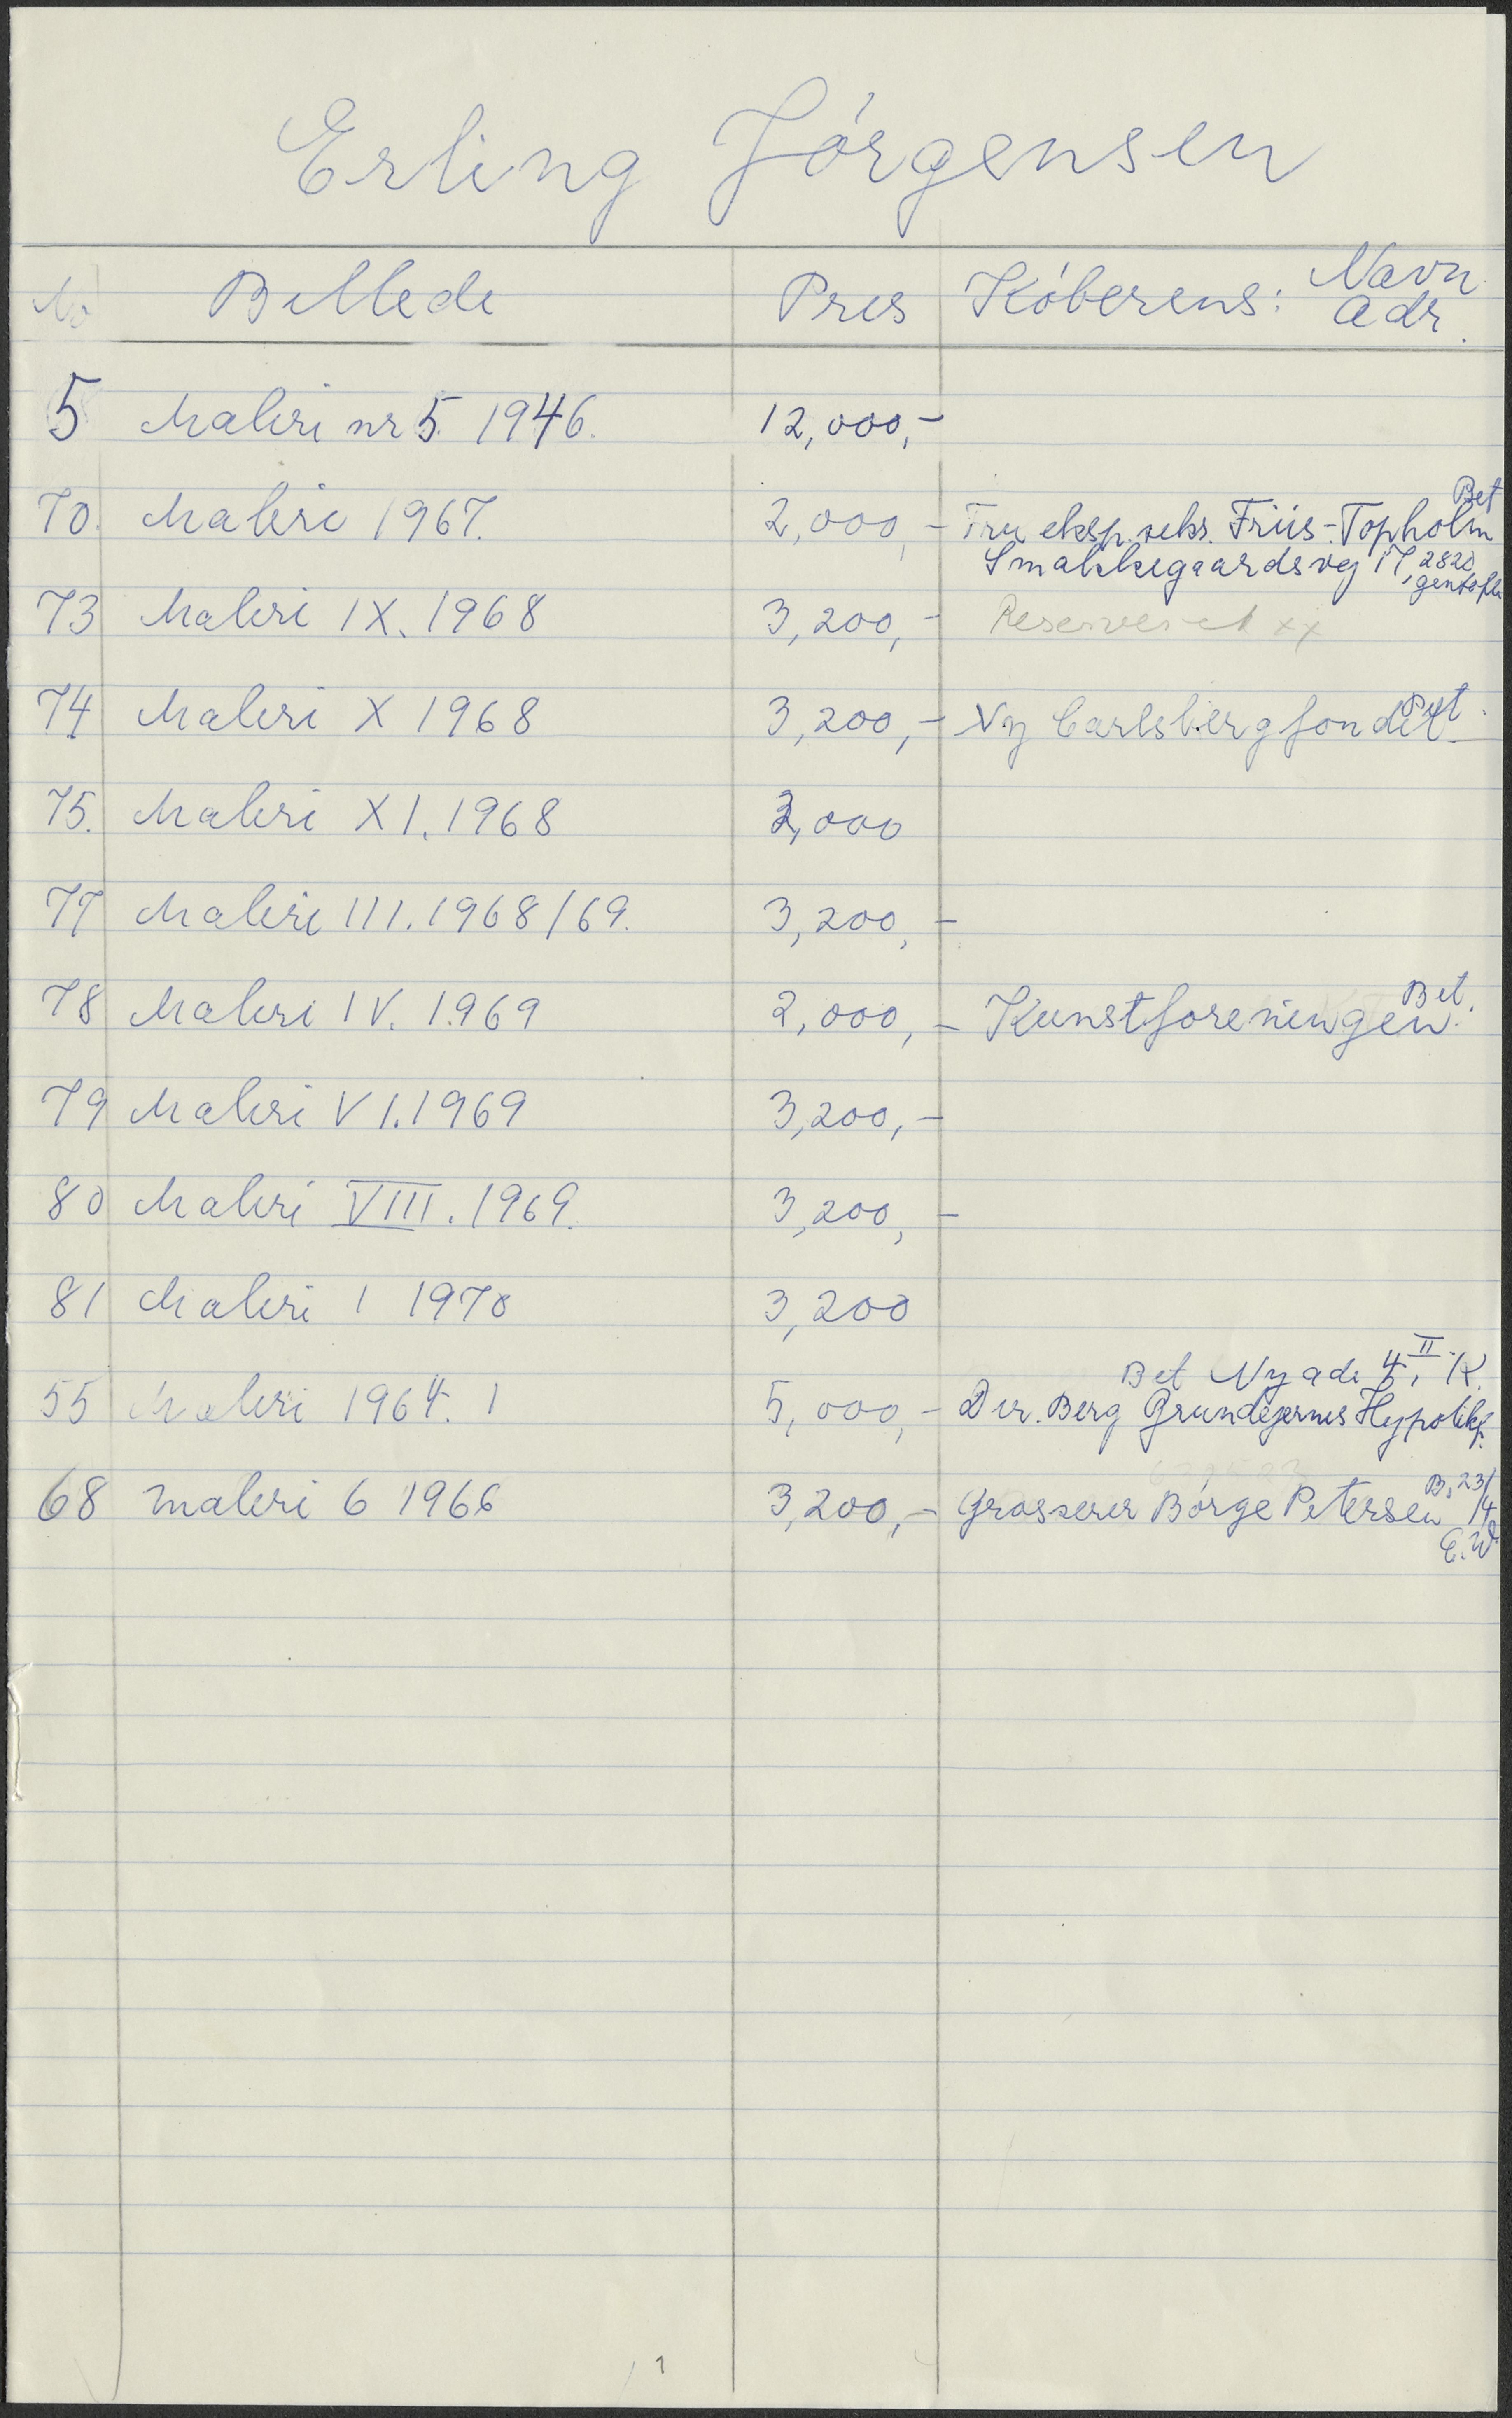 Erling Jörgensen
No Billede Pris Köberens: Navn
Adr.
5 Maleri nr 5. 1946. 12,000,-
Bet
70. Maleri 1967. 2,000,- Fru eksp. sekr. Friis-Topholm
Smakkegaardsvej 17, 2820
gentofte
73 Maleri IX. 1968 3,200,- Reserveret xx
Bet.
74 Maleri X 1968 3,200,- Ny Carlsbergfondet
75. Maleri XI. 1968 3,000
77 Maleri III. 1968/69. 3,200,-
Bet.
78 Maleri IV. 1969 2,000,- Kunstforeningen.
79 Maleri VI. 1969 3,200,-
80 Maleri VIII. 1969. 3,200,-
81 Maleri 1 1970 3,200
Bet II K.
55 Maleri 1964. 1 5,000,- Dir. Berg Grundejernes Hypotekf.
B. 23/4
68 Maleri 6 1966 3,200,- Grosserer Börge Petersen
E.W.
1